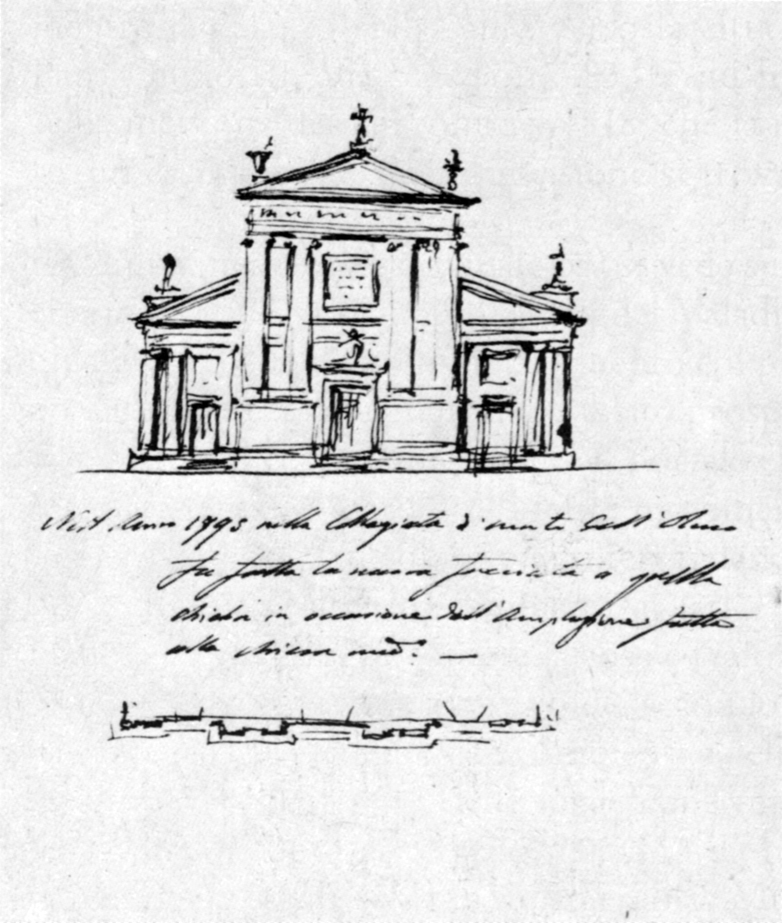 Nell'Anno 1793 nella Collegiata di monte dell'Olmo
fu fatta la nuova facciata a quella
chiesa in occasione dell'Ampliazione fatta
alla chiesa med.ª —